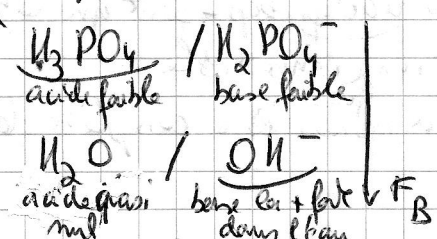 H₃PO₄ / H₂PO₄⁻
acide faible base faible
H₂O / OH⁻
acide quasi base la + forte F_B
nul dans l'eau